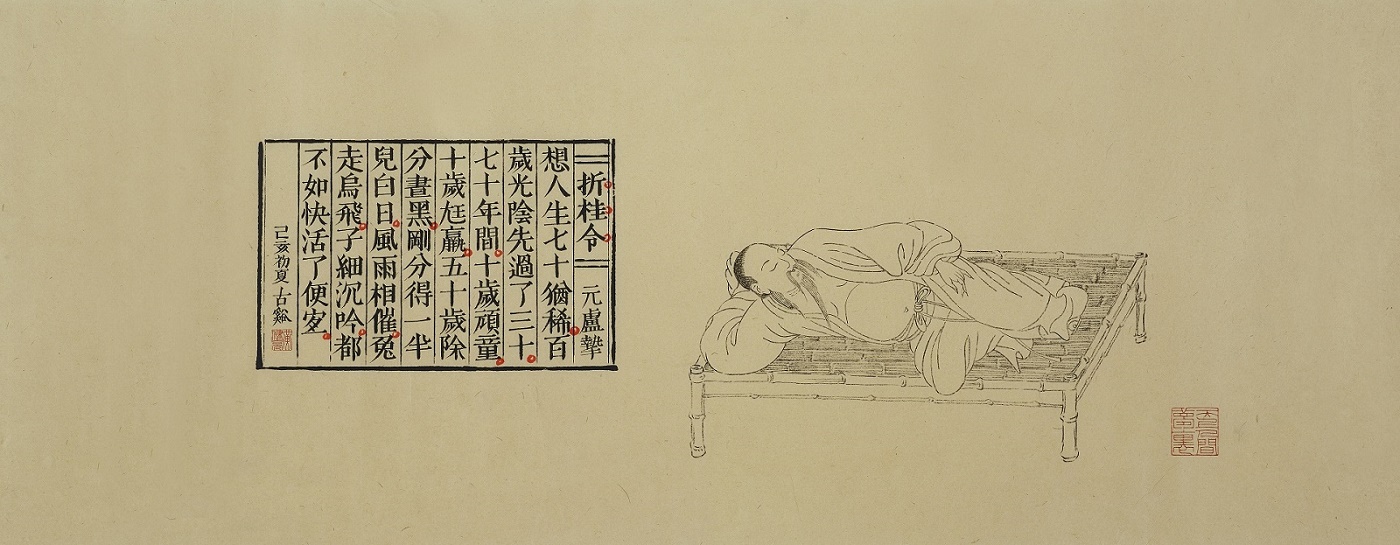 折桂令 元盧摯
想人生七十猶稀百
歲光陰先過了三十
七十年間十歲頑童
十歲尪羸五十歲除
分晝黑剛分得一半
兒白日風雨相催兔
走烏飛子細沉吟都
不如快活了便宐
己亥初夏古谿